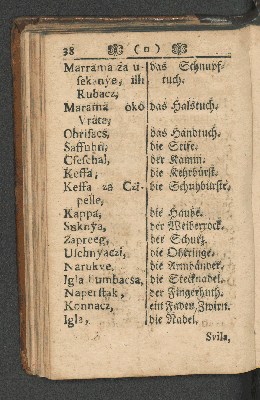 38 ( II )
Marrama za u- das Schnupf-
sekanye, illi tuch.
Rubacz,
Marama oko das Halstuch.
Vrata,
Obrisacs, das Handtuch.
Saffuhn, die Seife.
Cseschal, der Kamm.
Keffa, die Kehrbürst.
Keffa za Czi- die Schuhbürste.
pelle,
Kappa, die Haube.
Suknya, der Weiberrock.
Zapreeg, der Schurz.
Ulchnyaczi, die Ohrringe.
Narukve, die Armbänder.
Igla bumbacsa, die Stecknadel.
Naperstak, der Fingerhuth.
Konnacz, ein Faden Zwirn.
Igla, die Nadel.
Svila,